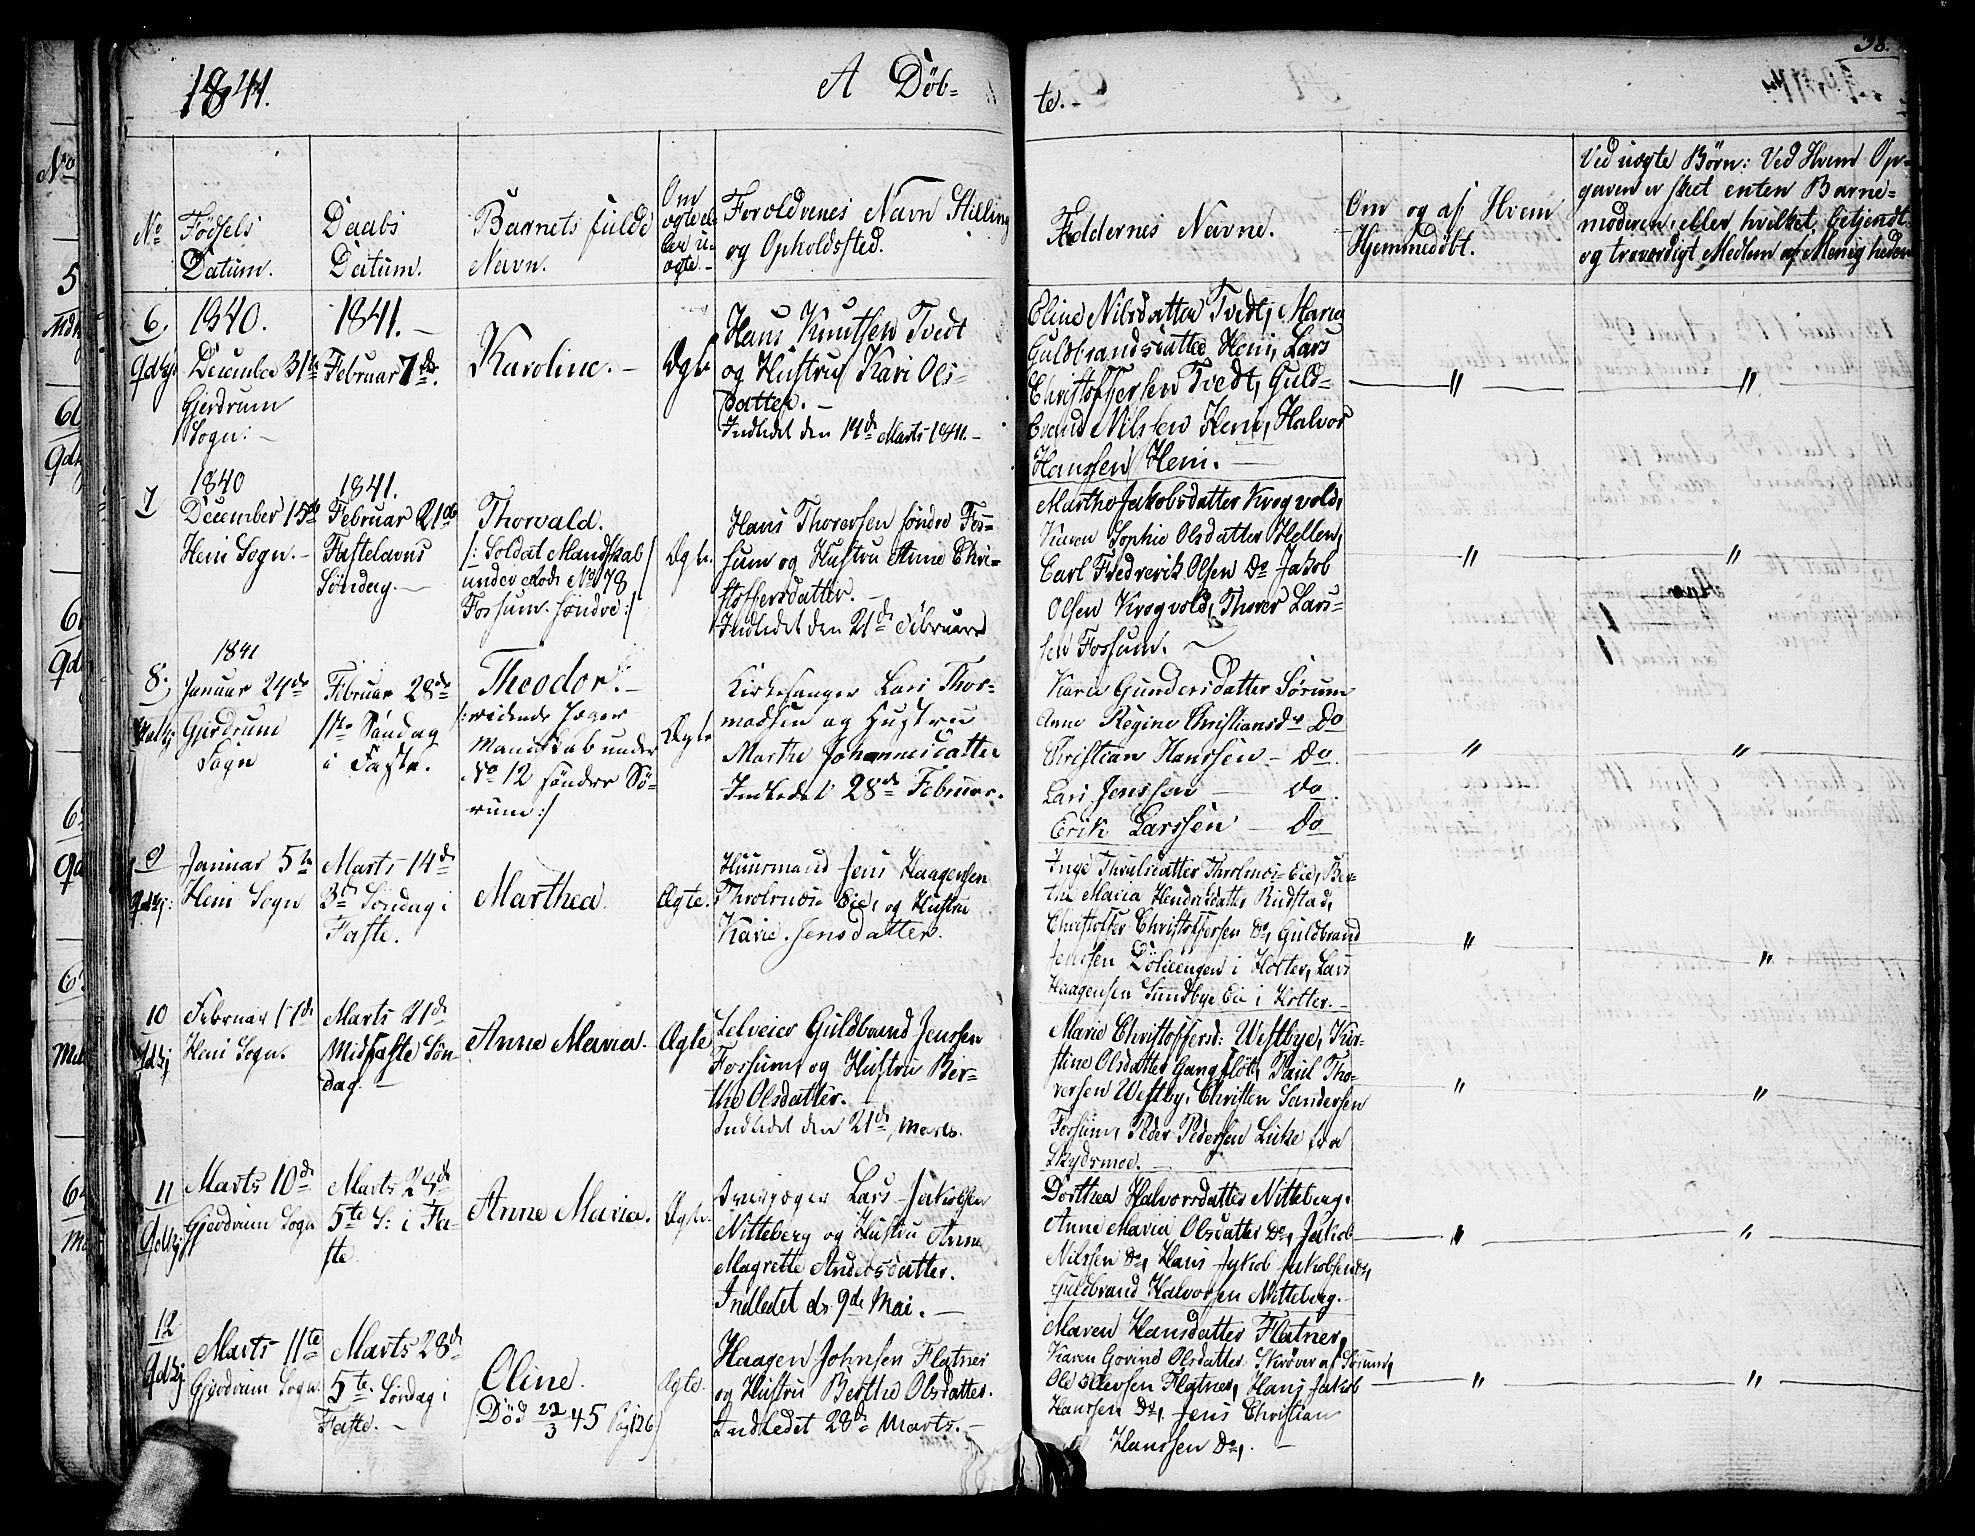 38.
1841.
A Döb=
te.
No
Födsels
Datum.
Daabs
Datum.
Barnets fulde
Navn.
Om
ægte el=
ler u=
ægte.
Forældrenes Navn Stilling
og Opholdssted.
Faddernes Navne.
Om og af Hvem
Hjemmedöbt.
Ved uægte Börn: Ved Hvem Op=
gaven er skeet enten Barne=
moderen, eller hvilket, betjendt
og troværdigt Medlem af Menigheden
6
1840.
December 31te
Gjerdrum
Sogn.
1841.
Februar 7de.
Karoline.
Ægte
Hans Knutsen Tvedt
og Hustru Kari Ols=
datter.
Indledet den 14de Marts 1841.
Eline Nilsdatter Tvedt, Marie
Guldbrandsdatter Heni, Lars
Christoffersen Tvedt, Guld=
brand Nilsen Heni, Halvor
Hanssen Heni.
"
"
7
1840
December 15de
Heni Sogn.
1841.
Februar 21de
Fastelavns
Söndag.
Thorvald.
/: Soldat Mandskab
under Rode No 78
Fossum söndre :/
Ægte.
Hans Thorersen söndre Fos=
sum og Hustru Anne Chri=
stoffersdatter.
Indledet den 21de Februar
Marthe Jakobsdatter Krogvold,
Karen Sophie Olsdatter Hellen,
Carl Fredrerik Olsen Do Jakob
Olsen Krogvold, Thorer Lars=
sen Fossum.
"
"
8.
1841
Januar 24de
Gjerdrum
Sogn
Februar 28de
1te Söndag
i Faste.
Theodor.
/: ridende Jæger
Mandskab under
No 12 söndre Sö=
rum :/
Ægte
Kirkesanger Lars Thor=
madsen og Hustru
Marthe Johannesdatter
Indledet 28de Februar.
Karen Gundersdatter Sörum
Anne Regine Christiansdr Do
Christian Hanssen - Do.
Lars Jenssen - Do.
Erik Larssen - Do
"
"
9
Januar 5te
Heni Sogn
Marts 14de
3de Söndag i
Faste.
Marthea.
Ægte.
Huusmand Jens Haagensen
Eie, og Hustru
Karie Jensdatter.
Inge
Maria Hendriksdatter Rudstad,
Christoffer Christoffersen Do, Guldbrand
Jenssen i Holter, Lars
Haagensen Sundbye Eie i Holter.
"
"
10
Februar 11de
Heni Sogn.
Marts 21de
Midfaste Sön=
dag.
Anne Maria.
Ægte
Selveier Guldbrand Jenssen
Fossum, og Hustru Ber=
the Olsdatter.
Indledet den 21de Marts.
Marie Christoffersd: Westbye, Kir=
stine Olsdatter Gangflöt, Paul Tho=
rersen Westby, Christen Sandersen
Fossum, Peder Pedersen
"
"
11
Marts 10de
Gjerdrum Sogn
Marts 28de
5te S: i Fa=
ste.
Anne Maria.
Ægte.
Lars Jakobsen
Nitteberg og Hustru Anne
Magrette Andersdatter.
Indledet d. 9de Mai.
Dorthea Halvorsdatter Nitteberg,
Anne Maria Olsdatter Do, Jakob
Nilssen Do, Hans Jakob Jakobsen Do,
Guldbrand Halvorsen Nitteberg.
"
"
12
Marts 11te
Gjerdrum Sogn.
Marts 28de
5te Söndag i
Faste.
Oline.
(Död 22/3 45 Pag 126)
Ægte.
Haagen Johnsen Flatner
og Hustru Berthe Olsdatter.
Indledet 28de Marts.
Maren Hansdatter Flatner,
Karen Govine Olsdatter Skröver af Sörum,
Ole Flatner, Hans Jakob
Hanssen Do, Jens Christian
Hanssen Do,
"
"